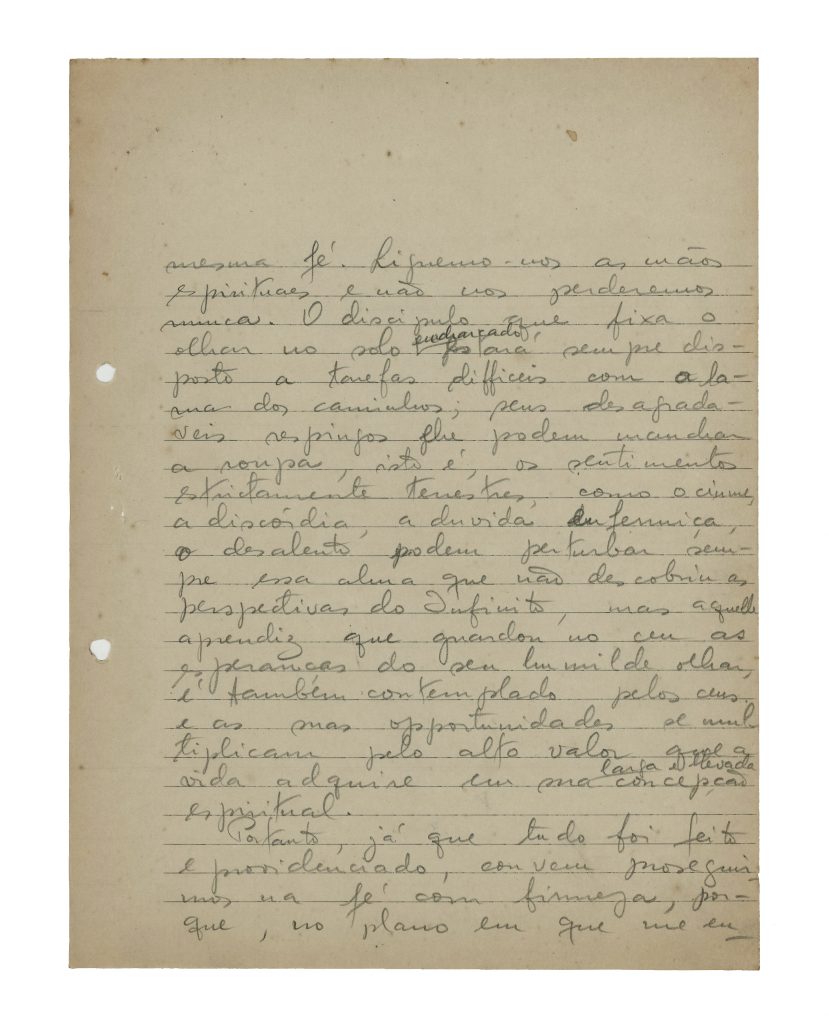 mesma fé. Liguemo-nos as mãos
espirituaes e não nos perderemos
nunca. O discipulo que fixa o
encharcado
olhar no solo estará sempre dis-
posto a tarefas difficeis com a la-
ma dos caminhos; seus desagrada-
veis respingos lhe podem manchar
a roupa, isto é, os sentimentos
estrictamente terrestres, como o ciume,
a discórdia, a duvida enfermiça,
o desalento podem perturbar sem-
pre essa alma que não descobriu as
perspectivas do Infinito, mas aquelle
aprendiz que guardou no ceu as
esperanças do seu humilde olhar,
é também contemplado pelos ceus
e as suas opportunidades se mul
tiplicam pelo alto valor que a
larga e elevada
vida adquire em sua concepção
espiritual.
Portanto, já que tudo foi feito
e providenciado, convem proseguir-
mos na fé com firmeza, por-
que, no plano em que me en-